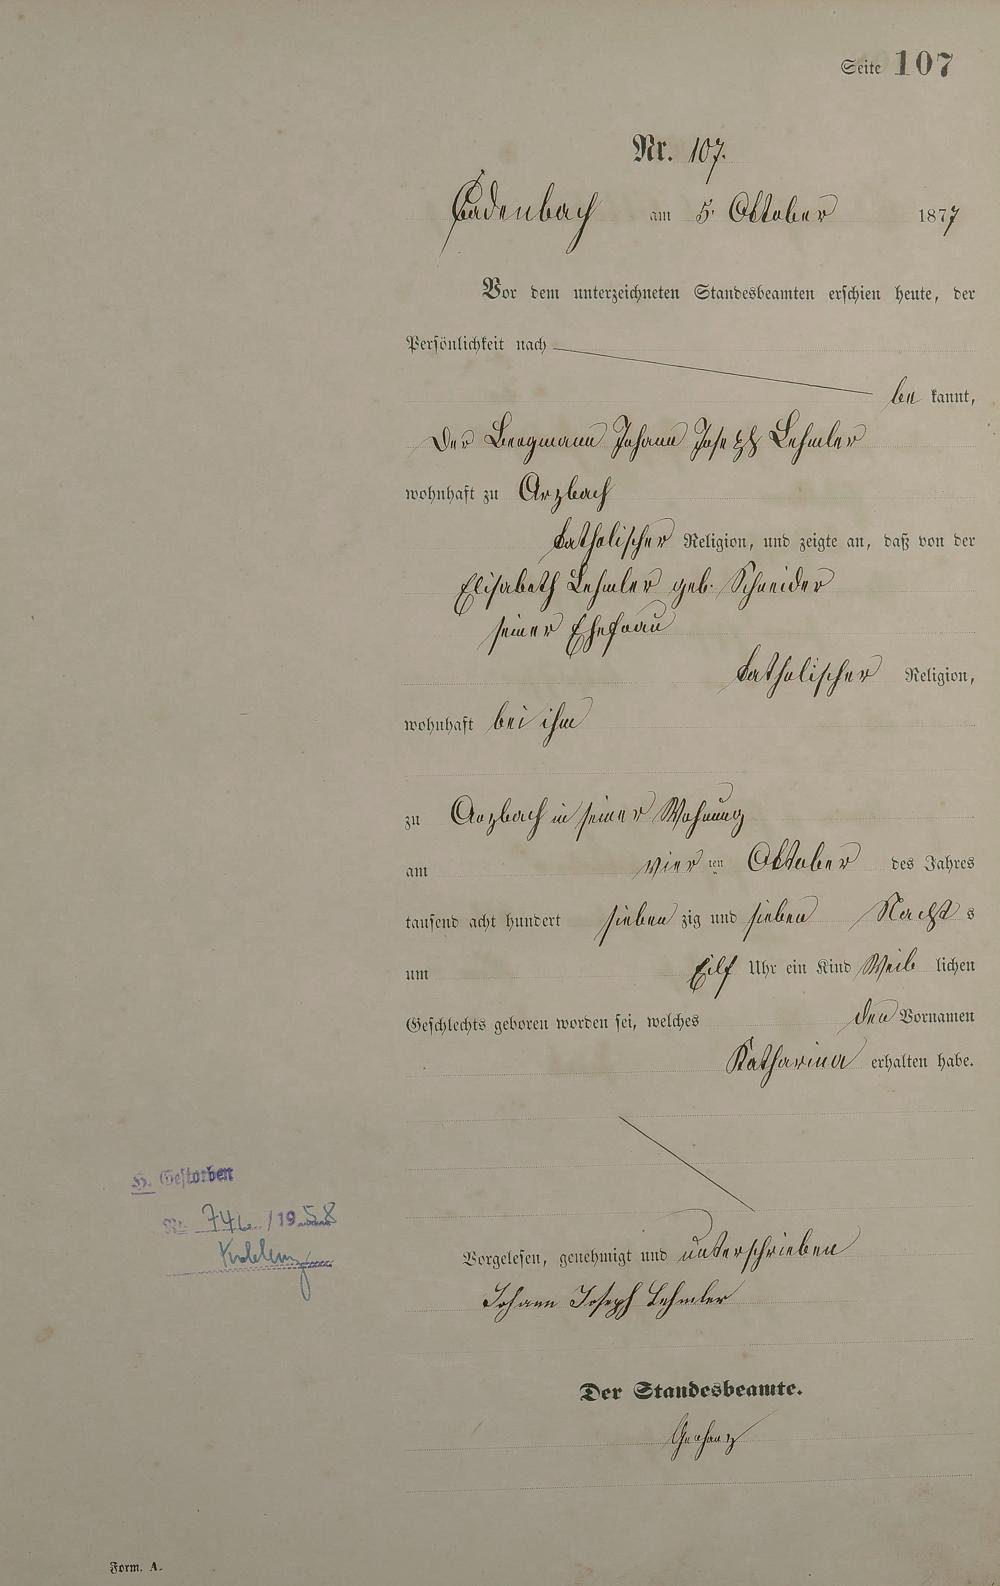 Seite 107
Nr. 107.
Cadenbach am 5. Oktober 1877
Vor dem unterzeichneten Standesbeamten erschien heute, der
Persönlichkeit nach
be kannt,
der Bergmann Johann Joseph Lehmler
wohnhaft zu Arzbach
katholischer Religion, und zeigte an, daß von der
Elisabeth Lehmler geb. Schneider
seiner Ehefrau
katholischer Religion,
wohnhaft bei ihm
zu Arzbach in seiner Wohnung
am vier ten Oktober des Jahres
tausend acht hundert sieben zig und sieben Nacht s
um Eilf Uhr ein Kind Weib lichen
Geschlechts geboren worden sei, welches den Vornamen
Katharina erhalten habe.
H. Gestorben
Nr. /1958
Koblenz
Vorgelesen, genehmigt und unterschrieben
Johann Joseph Lehmler
Der Standesbeamte.
Gerharz
Form. A.